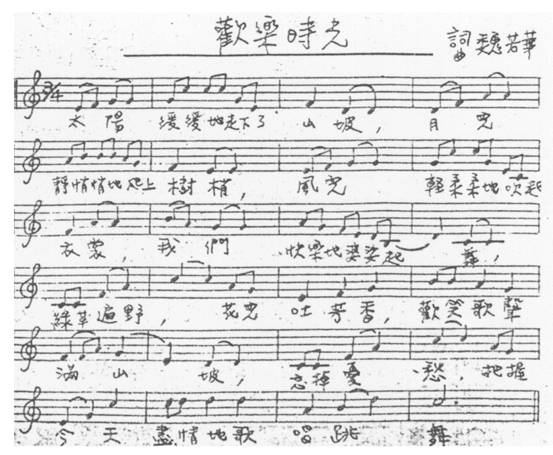 歡樂時光
詞曲 魏若華
3/4
太陽 緩緩地走下了 山坡, 月兒
靜悄悄地爬上 樹梢, 風兒 輕柔柔地吹起
衣裳, 我們 快樂地婆娑起 舞,
綠草遍野, 花兒 吐芳香, 歡笑歌聲
滿山 坡, 忘掉憂 愁, 把握
今天 盡情地歌 唱跳 舞